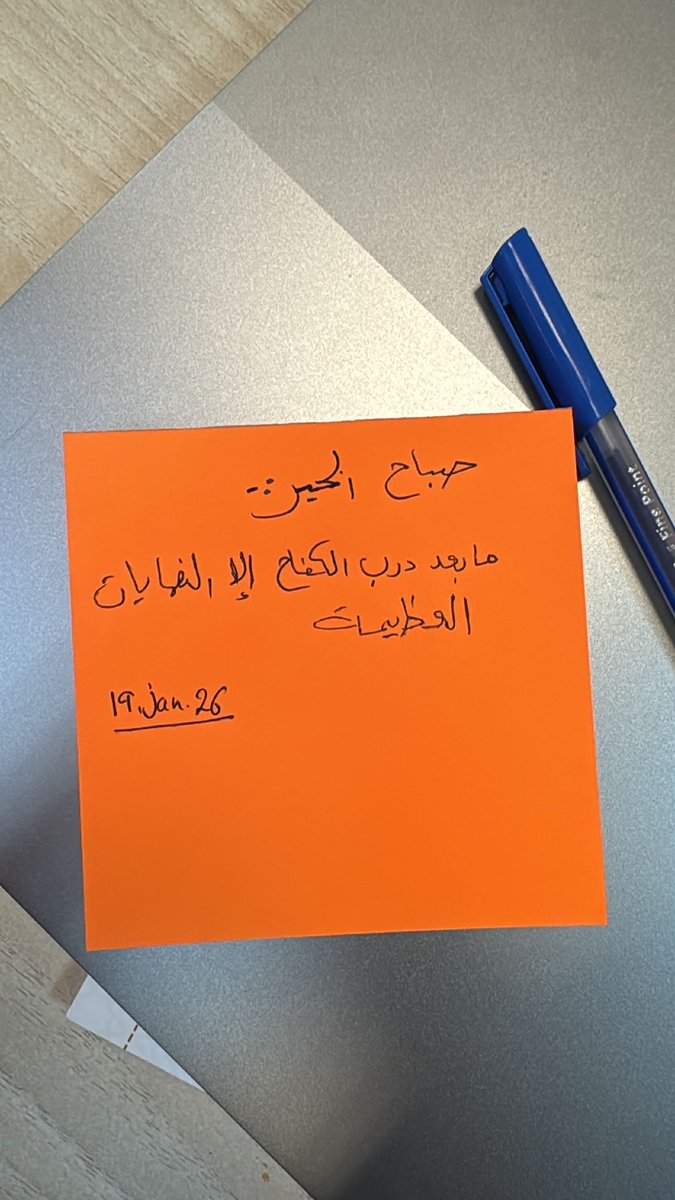 صباح الخير..
ما بعد درب الكفاح إلا النهايات
العظيمة
19.jan.26
Fine Point